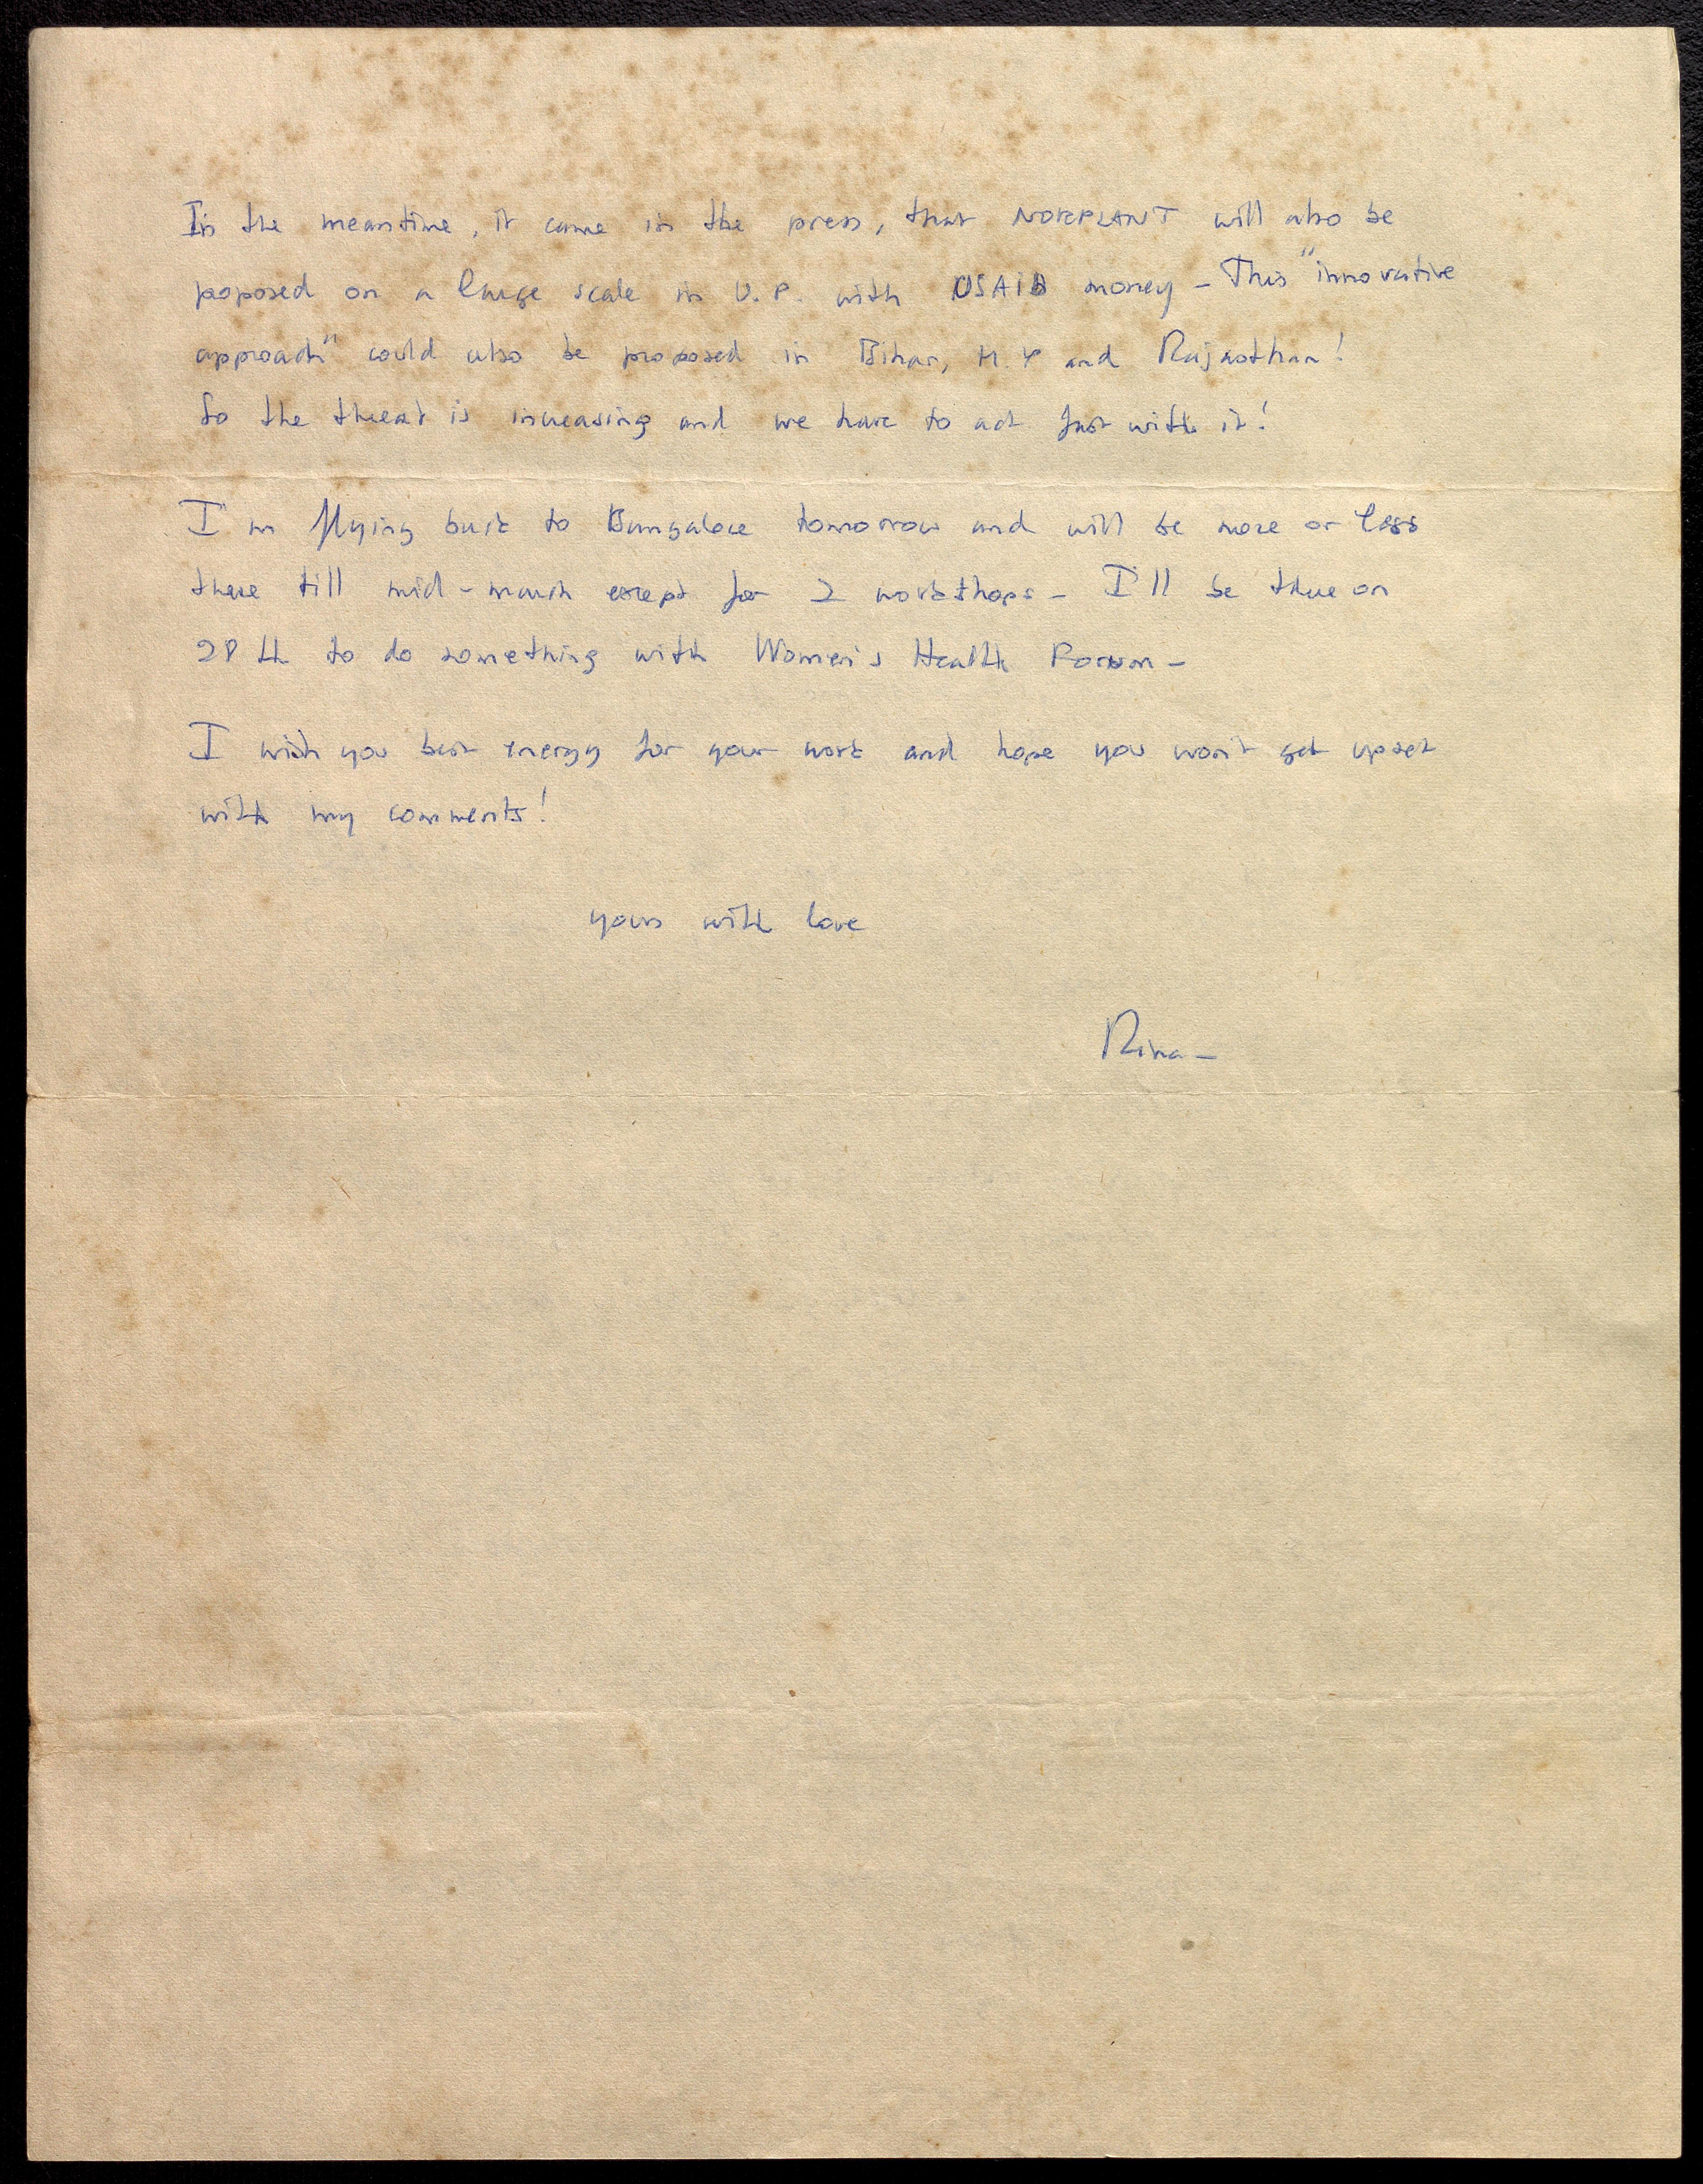 In the meantime, it came in the press, that NORPLANT will also be
poposed on a large scale in U.P. with USAID money - This "innovative
approach" could also be proposed in Bihar, M.P and Rajasthan!
So the threat is increasing and we have to act fast with it!
I'm flying back to Bangalore tomorrow and will be more or less
there till mid-march except for 2 workshops - I'll be there on
28th to do something with Women's Health Forum -
I wish you best energy for your work and hope you won't get upset
with my comments!
yours with love
Rina -